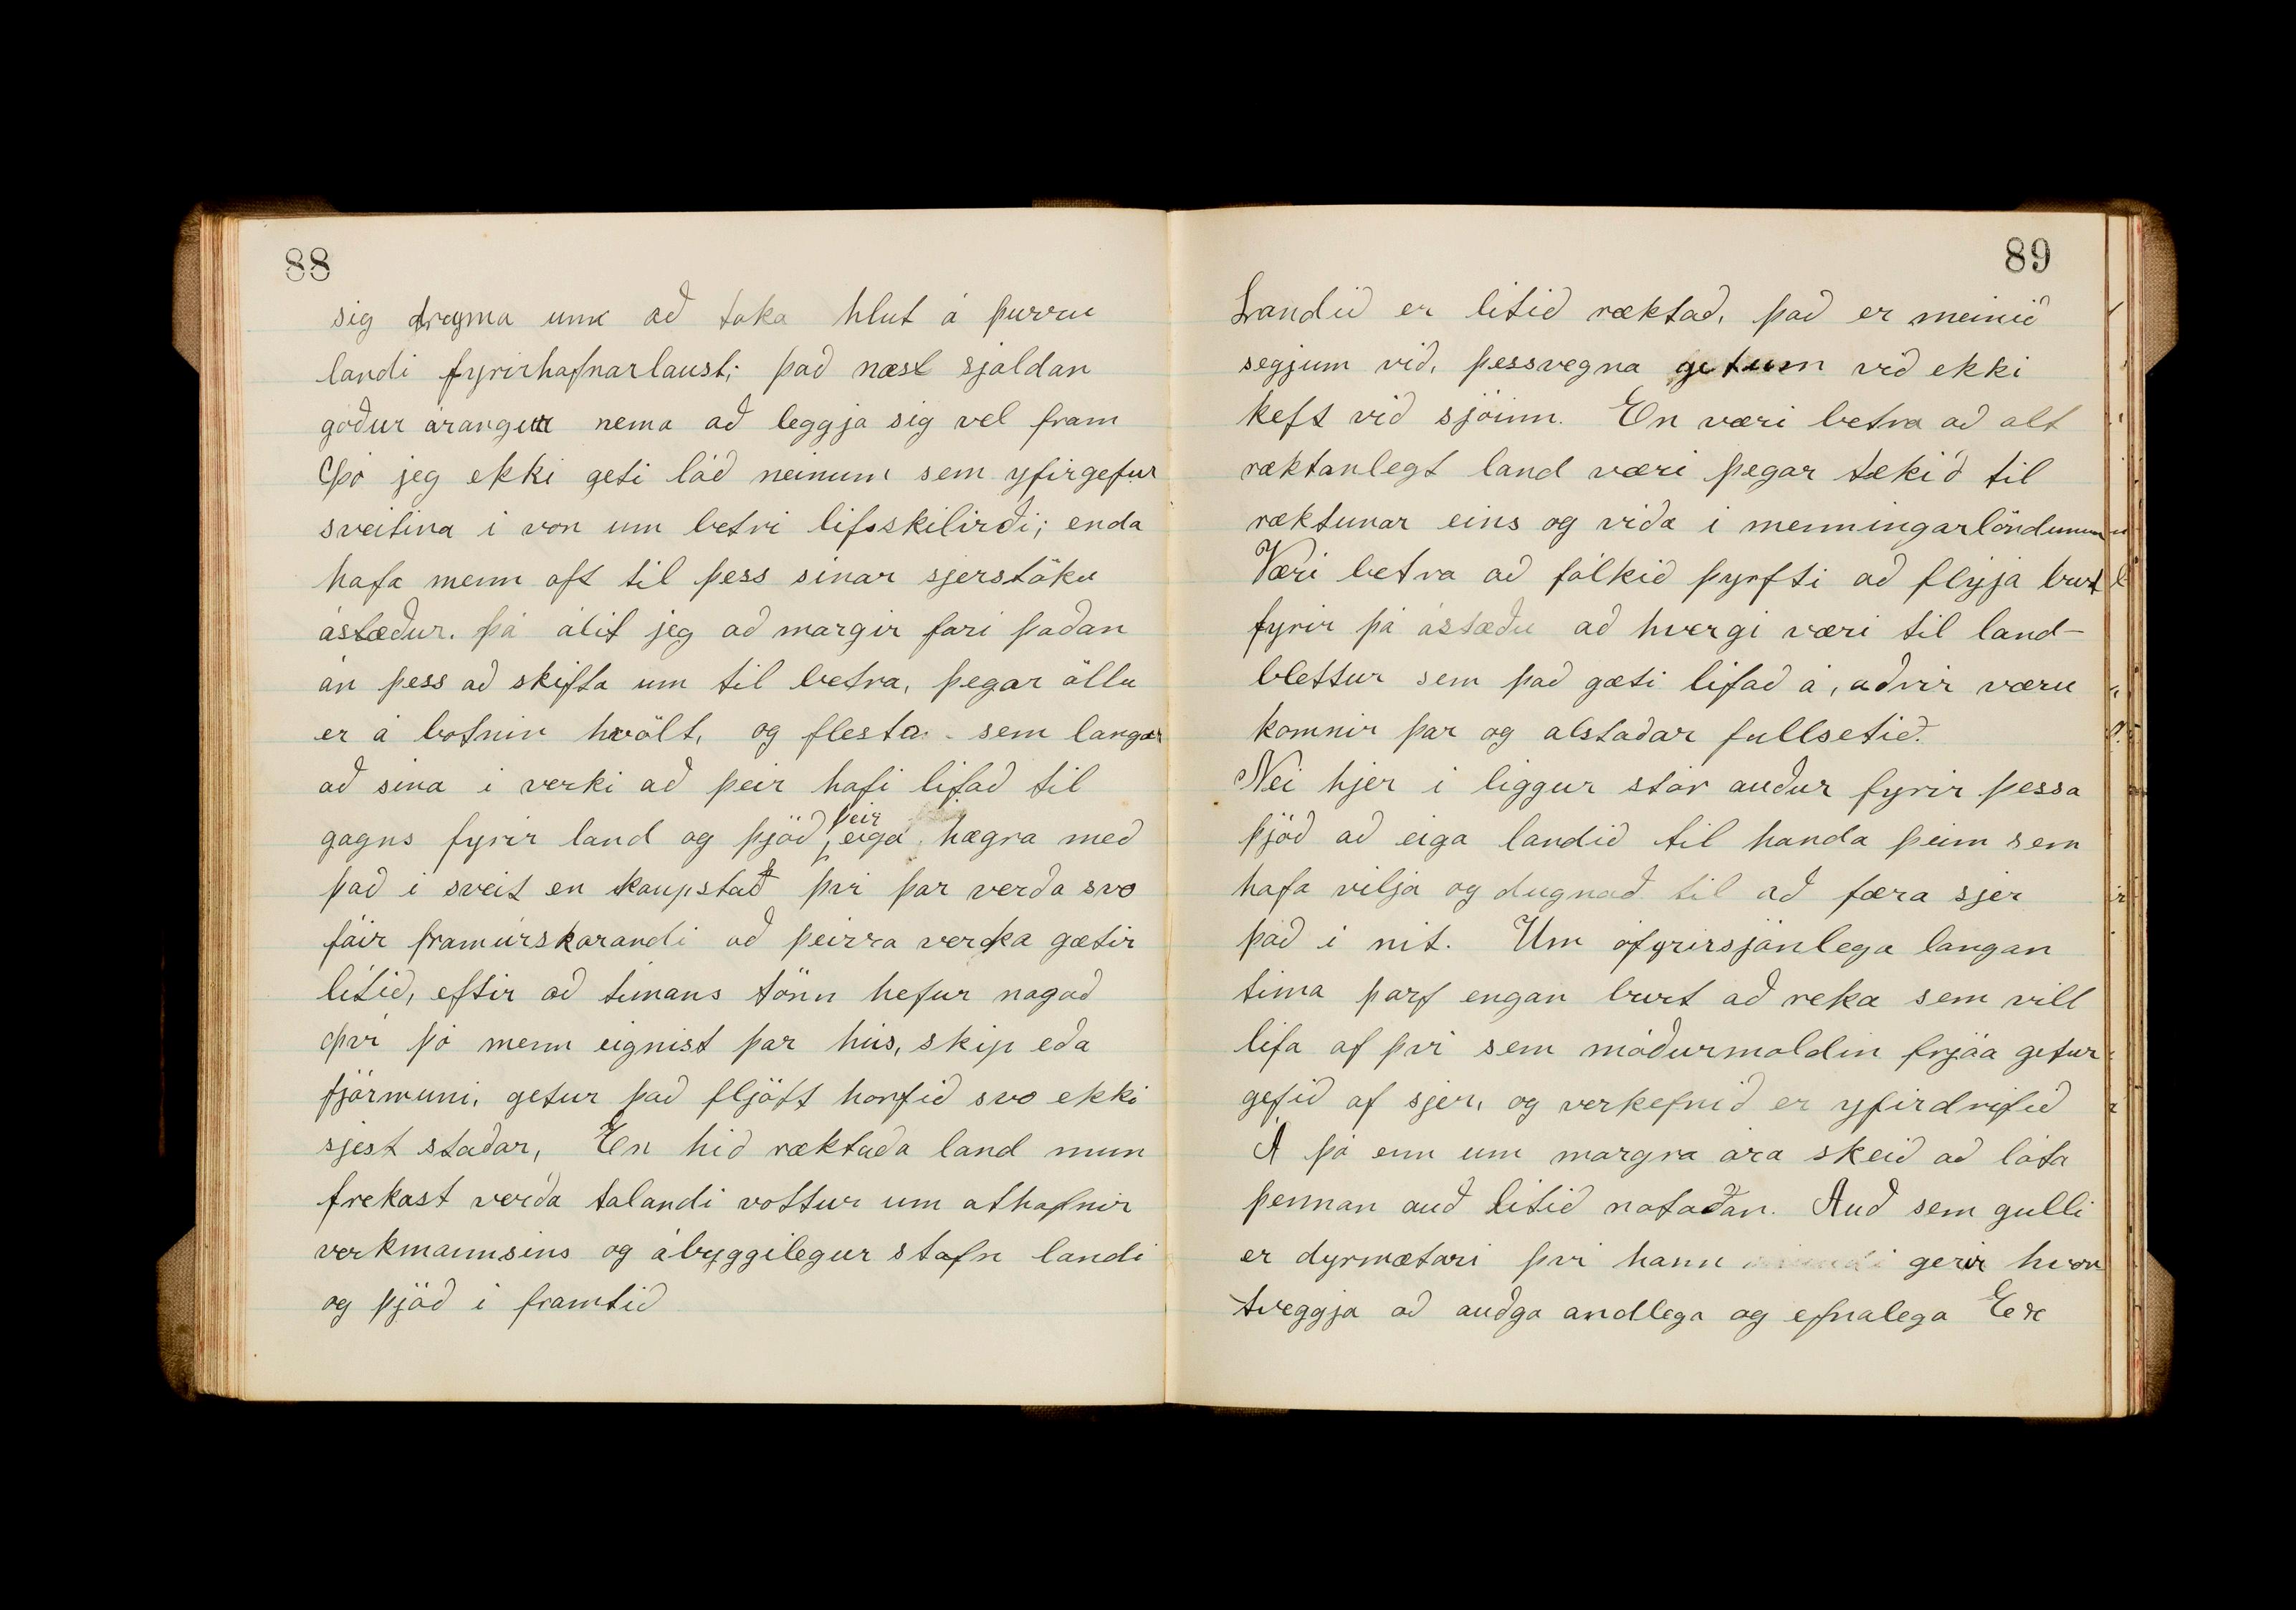 88
sig drayma um að taka hlut á þurru
landi fyrirhafnarlaust; það næst sjaldan
góður árangur nema að leggja sig vel fram
Þó jeg ekki geti láð neinum sem yfirgefur
sveitina i von um betri lifsskilirði; enda
hafa menn oft til þess sinar sjerstöku
ástæður. þá álit jeg að margir fari þaðan
án þess að skifta um til betra, þegar öllu
er á botnin hvölt, og flesta sem langar
að sina i verki að þeir hafi lifað til
gagns fyrir land og þjöð, þeir eiga hægra með
það i sveit en kaupstað þvi þar verða svo
fáir framúrskarandi að þeirra verka gætir
litið, eftir að timans tönn hefur nagað
þvi þó menn eignist þar hús, skip eða
fjármuni, getur það fljótt horfið svo ekki
sjest staðar, En hið ræktaða land mun
frekast verða talandi vottur um athafnir
verkmannsins og ábyggilegur stofn landi
og þjöð i framtið
89
Landið er litið ræktað, það er meinið
segjum við, þessvegna getum við ekki
keft við sjóinn. En væri betra að alt
ræktanlegt land væri þegar tekið til
ræktunar eins og viða i menningarlöndunum
Væri betra að fólkið þyrfti að flyja burt
fyrir þá ástæðu að hvergi væri til land-
blettur sem það gæti lifað á, aðrir væru
komnir þar og alstaðar fullsetið.
Nei hjer i liggur stór auður fyrir þessa
þjöð að eiga landið til handa þeim sem
hafa vilja og dugnað til að færa sjer
það i nit. Um ófyrirsjánlega langan
tima þarf engan burt að reka sem vill
lifa af þvi sem móðurmoldin frjóa getur
gefið af sjer, og verkefnið er yfirdrifið
Á þó enn um margra ára skeið að láta
þennan auð litið notaðan. Auð sem gulli
er dyrmætari þvi hann gerir hvor
tveggja að auðga andlega og efnalega En